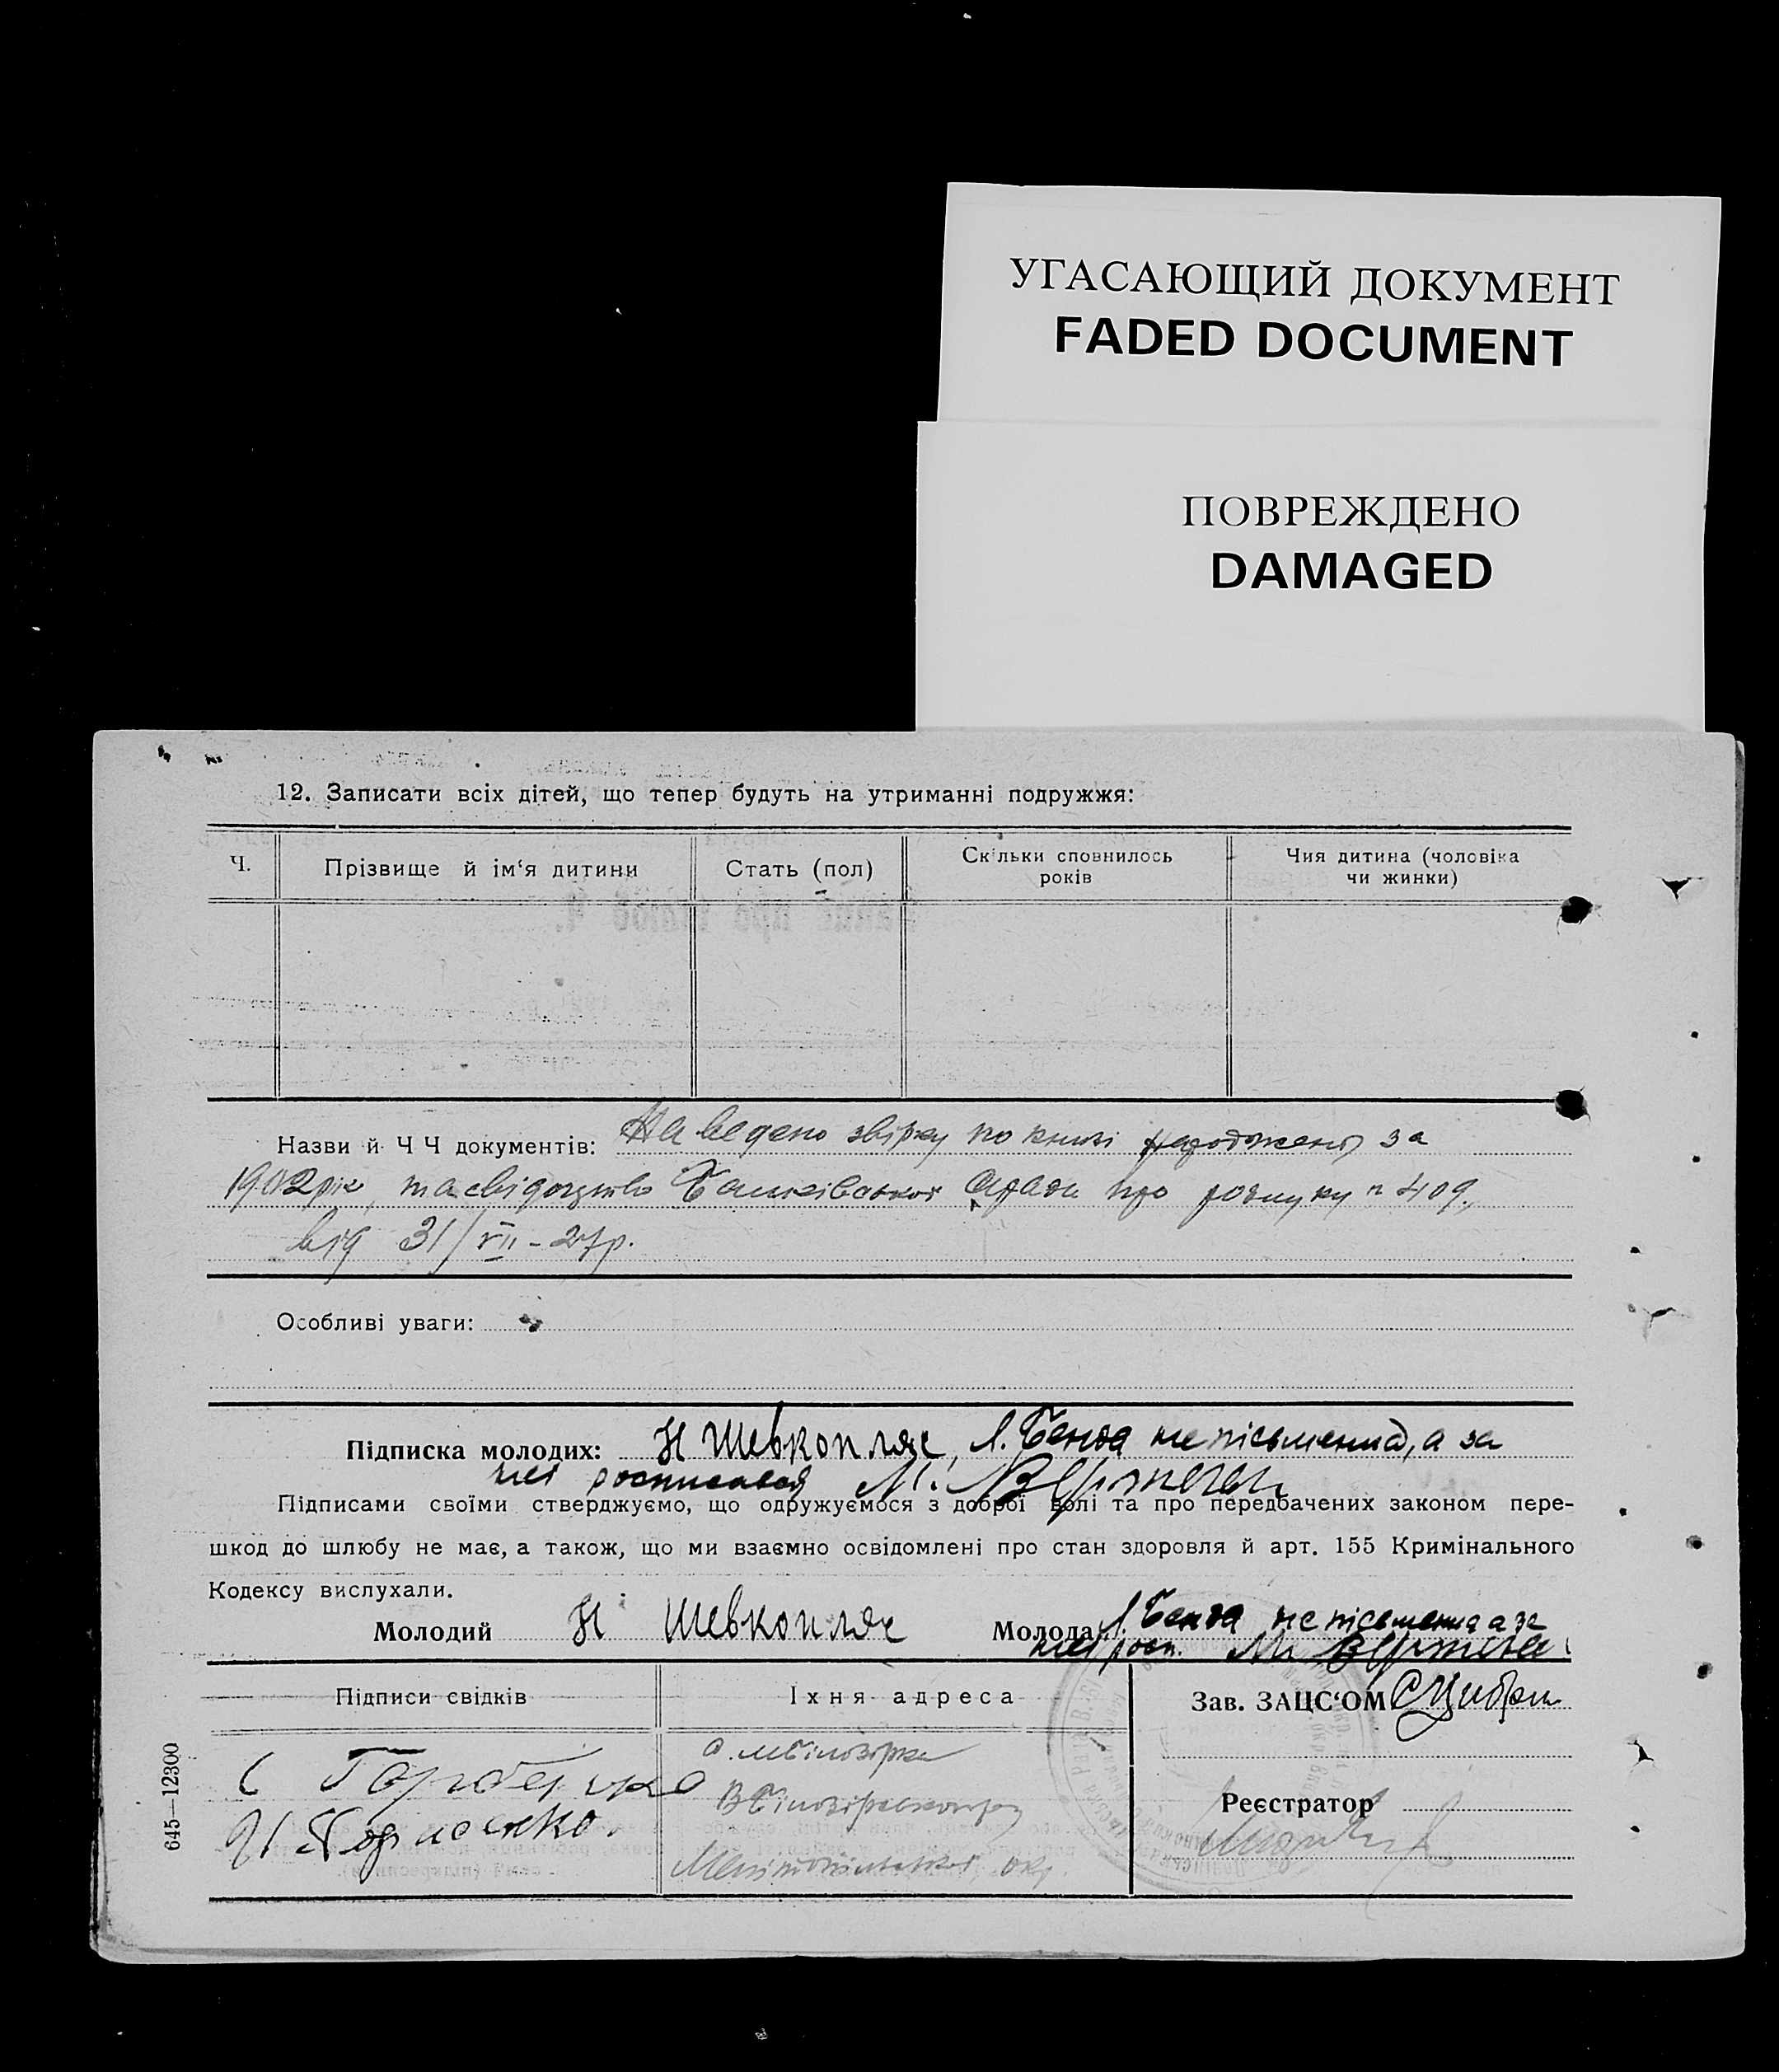 УГАСАЮЩИЙ ДОКУМЕНТ
FADED DOCUMENT
ПОВРЕЖДЕНО
DAMAGED
12. Записати всіх дітей, що тепер будуть на утриманні подружжя:
Ч.
Прізвище й ім‘я дитини
Стать (пол)
Скільки сповнилось
років
Чия дитина (чоловіка
чи жинки)
Назви й Ч Ч документів: На ведено звірку по книзі за
1902 рік, та свідоцтво про 409,
від 31/VII - 27р.
Особливі уваги:
Підписка молодих: Н Шевкопляс, Л. Бенда неписьменна, а за
неї росписався М.
Підписами своїми стверджуємо, що одружуємося з доброї волі та про передбачених законом пере-
шкод до шлюбу не має, а також, що ми взаємно освідомлені про стан здоровля й арт. 155 Кримінального
Кодексу вислухали.
Молодий Н Шевкопляс Молода Л. Бенда неписьменна а за
неї росп. М.
Підписи свідків
Їхня адреса
Зав. ЗАЦС‘ОМ
С Горбенко
с. М Білозірка
В Білозірського р
Реєстратор
Мелітопільської окр
645—12300